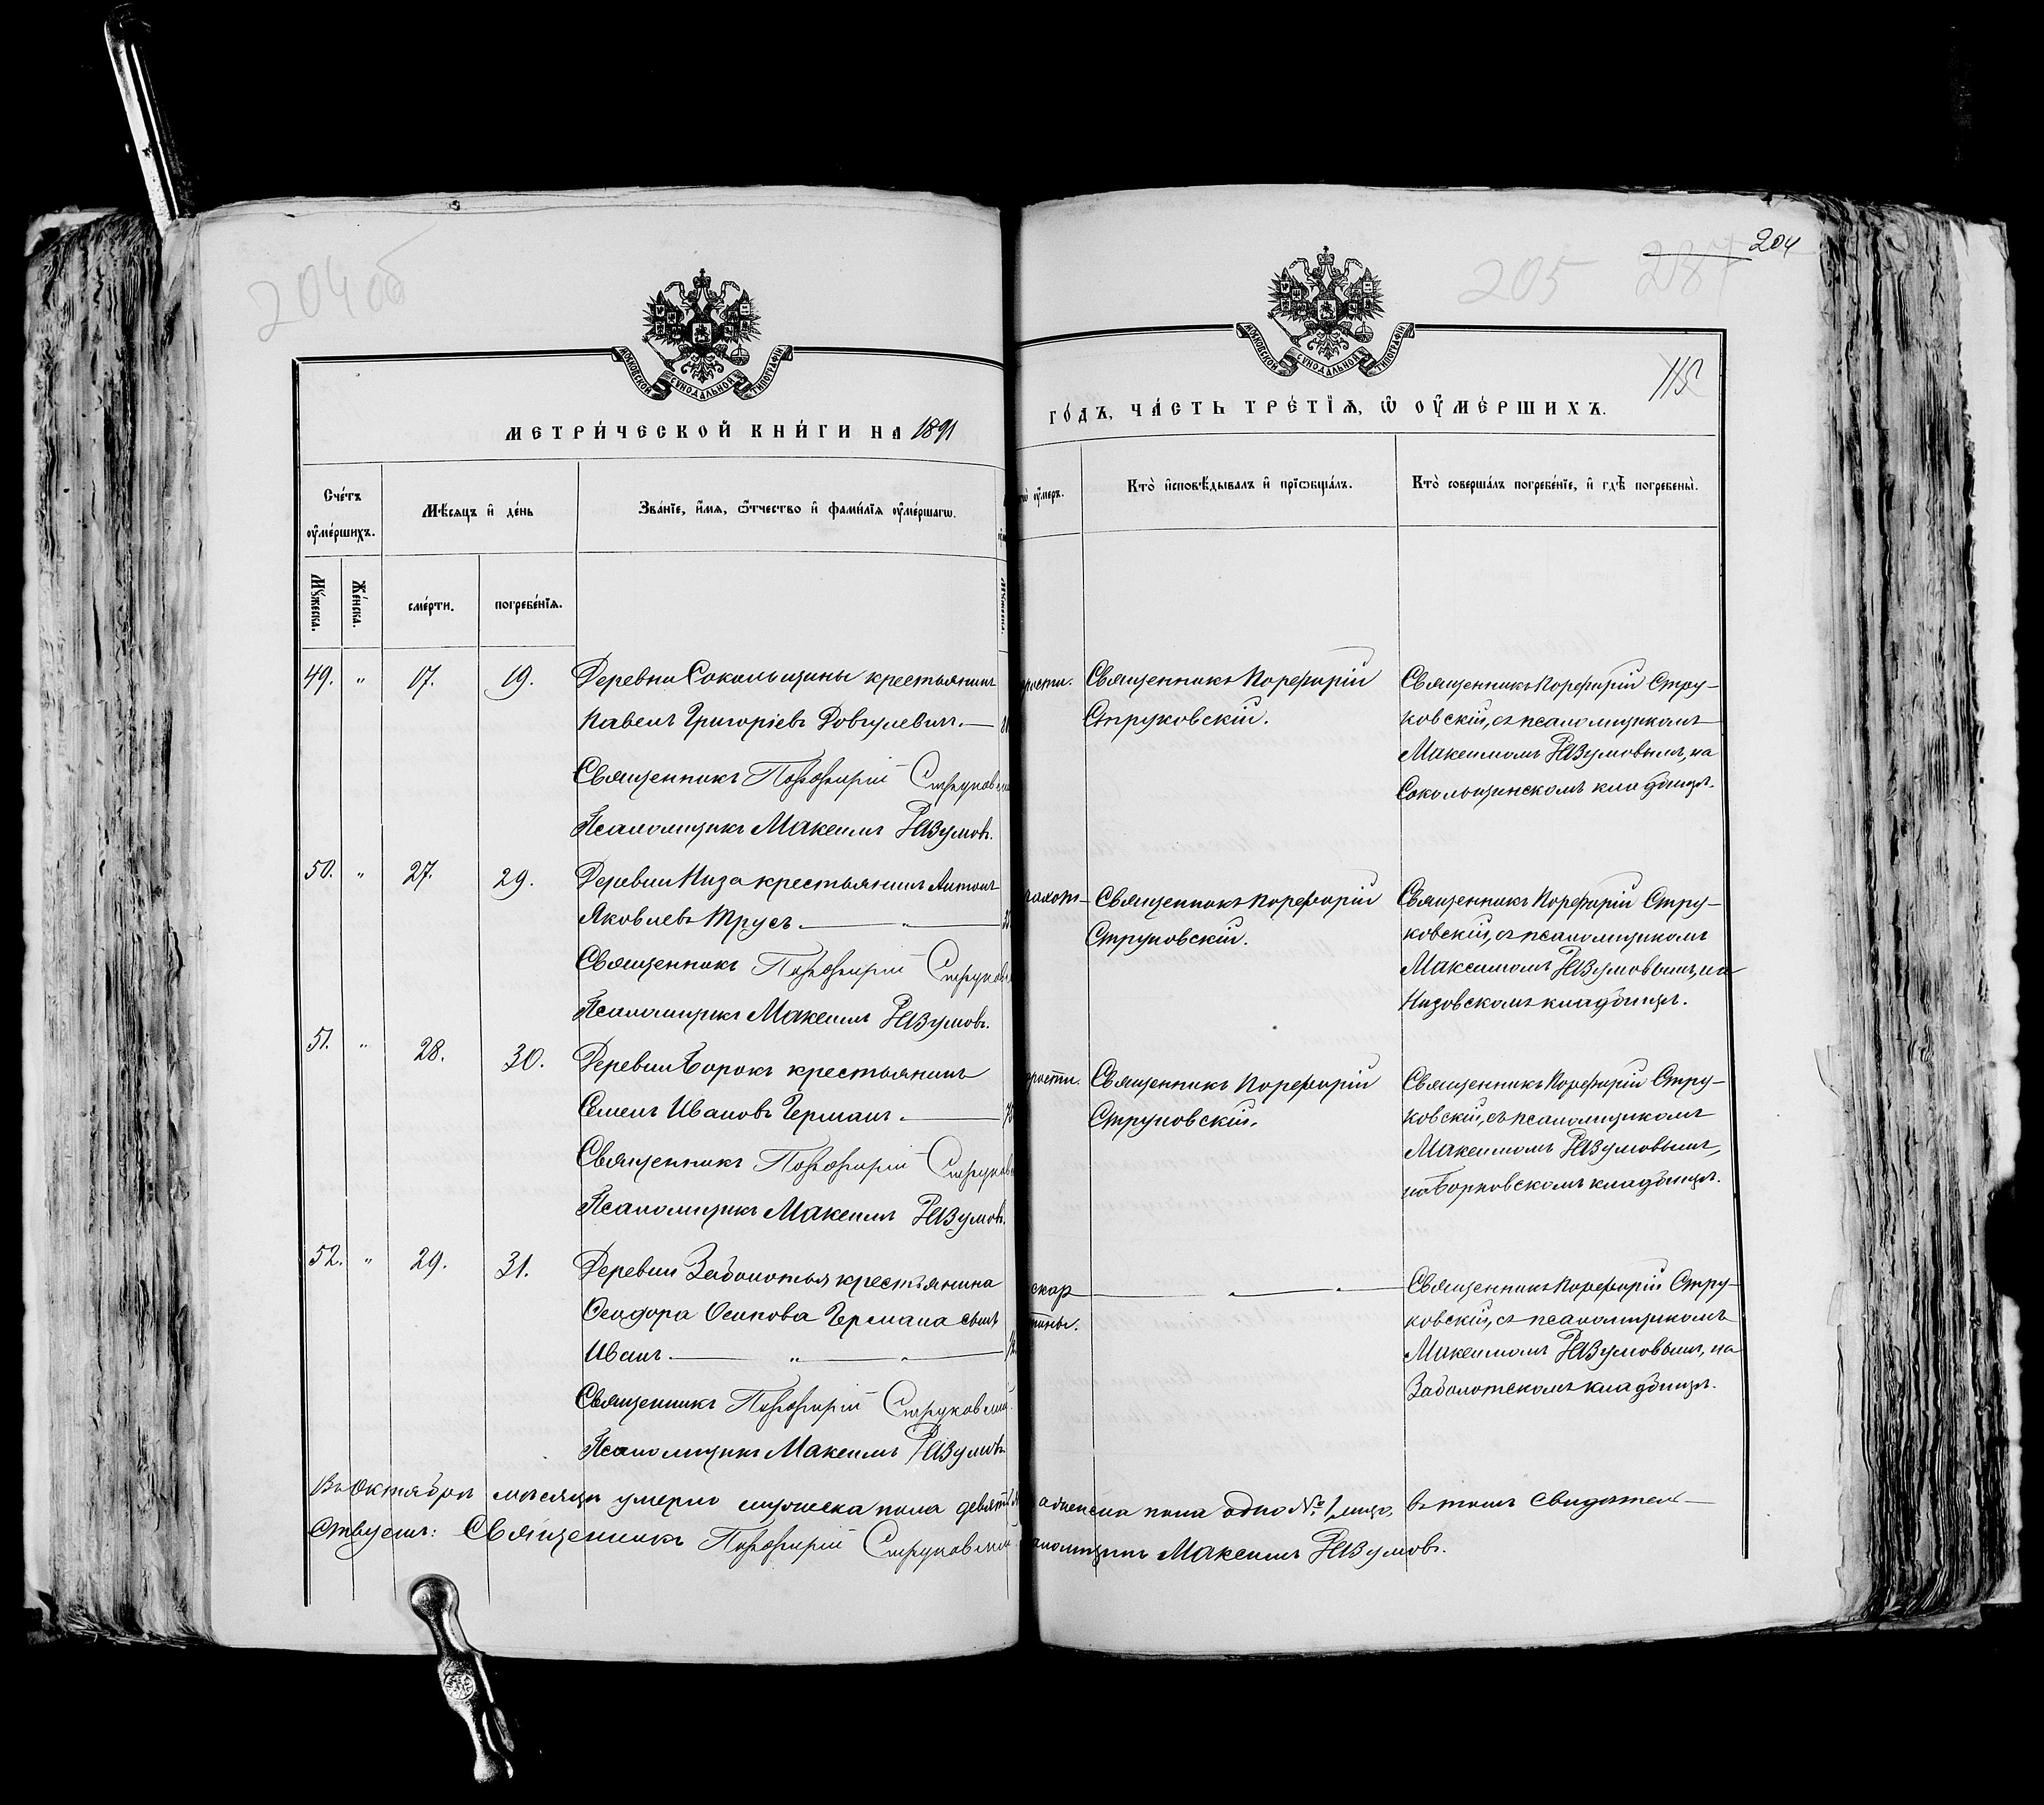 204об
205
287
204
115
МОСКОВСКОЙ СѴНОДАЛЬНОЙ ТИПОГРАФІИ
МОСКОВСКОЙ СѴНОДАЛЬНОЙ ТИПОГРАФІИ
МЕТРИ́ЧЕСКОЙ КНИ́ГИ НА 1891
ГО́ДЪ, ЧА́СТЬ ТРЕ́ТЇѦ, Ѡ҆ ОУ҆МЕ́РШИХЪ.
Сче́тъ
оу҆ме́ршихъ.
Мѣ́сяцъ и҆ де́нь
Зва́нїе, и҆́мѧ, ѻ҆́тчество и҆ фами́лїѧ оу҆ме́ршагѡ.
оу҆́меръ.
Кто̀ и҆сповѣ́дывалъ и҆ прїѡбща́лъ.
Кто̀ соверша́лъ погребе́нїе, и҆ гдѣ̀ погребены̀.
Мꙋ́жеска.
Же́нска.
сме́рти.
погребе́нїѧ.
49. " 17. 19. Деревни Сокольщины крестьянинъ
Павелъ Григоріевъ Довгулевич. —
Священникъ Порфирій Струковскій
Псаломщикъ Максимъ Разумовъ.
Священникъ Порфирій
Струковскій.
Священникъ Порфирій Стру-
ковскій, съ псаломщикомъ
Максимомъ Разумовымъ, на
Сокольщинскомъ кладбищѣ.
50. " 27. 29. Деревни Низа крестьянинъ Антонъ
Яковлевъ Трусъ. — "
Священникъ Порфирій
Псаломщикъ Максимъ Разумовъ.
Священникъ Порфирій
Струковскій.
Священникъ Порфирій Стру-
ковскій, съ псаломщикомъ
Максимомъ Разумовымъ, на
Низовскомъ кладбищѣ.
51. " 28. 30. Деревни Борокъ крестьянинъ
Семенъ Ивановъ Германъ. —
Священникъ Порфирій
Псаломщикъ Максимъ Разумовъ.
Священникъ Порфирій
Струковскій.
Священникъ Порфирій Стру-
ковскій, съ псаломщикомъ
Максимомъ Разумовымъ,
на Борковскомъ кладбищѣ.
52. " 29. 31. Деревни Заболотья крестьянина
Ѳеодора Осипова Германа сынъ
Иванъ. — " "
Священникъ Порфирій Струковскій.
Псаломщикъ Максимъ Разумовъ
скар
тины.
— " — " —
Священникъ Порфирій Стру-
ковскій, съ псаломщикомъ
Максимомъ Разумовымъ, на
Заболотскомъ кладбищѣ.
Въ Октябрѣ мѣсяцѣ умерло мужеска пола девять а женска пола одно № 1 лицо, въ томъ свидѣтель-
ствуемъ: Священникъ Порфирій Струковскій Максимъ Разумовъ.